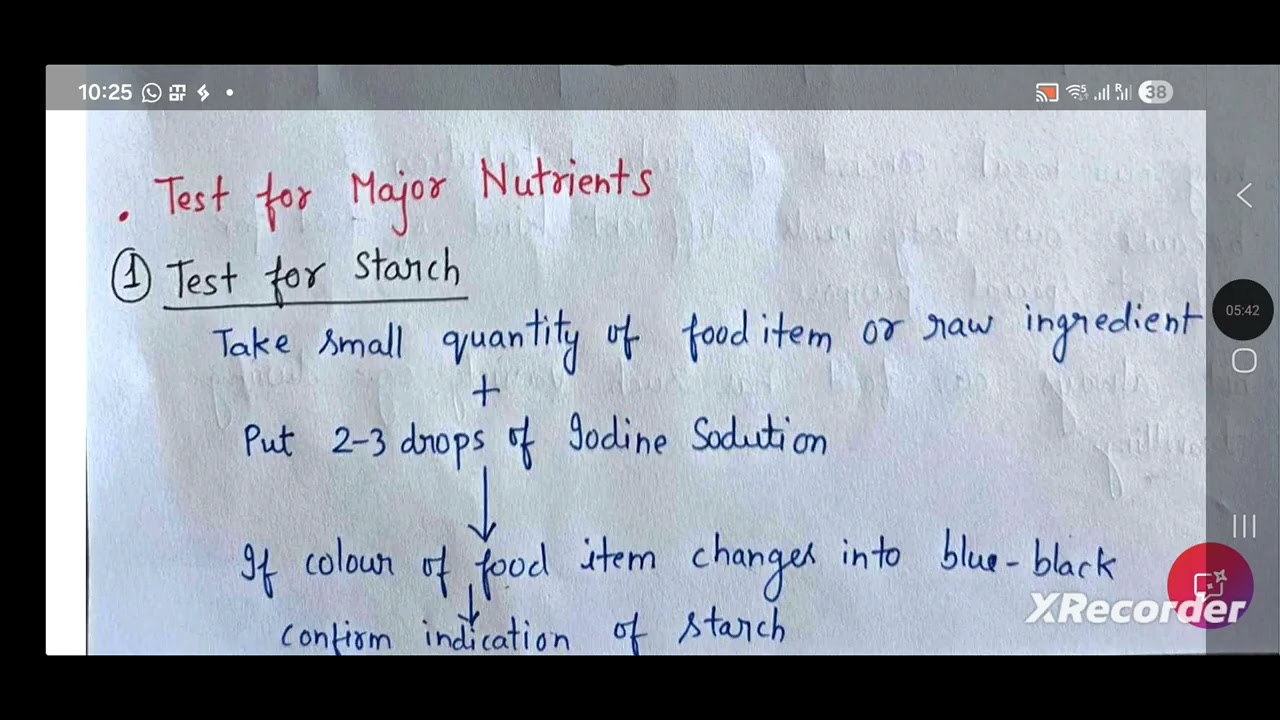 10:25
38
• Test for Major Nutrients
① Test for Starch
Take small quantity of food item or raw ingredient
+
Put 2-3 drops of Iodine Sodution
05:42
If colour of food item changes into blue-black
confirm indication of starch
XRecorder